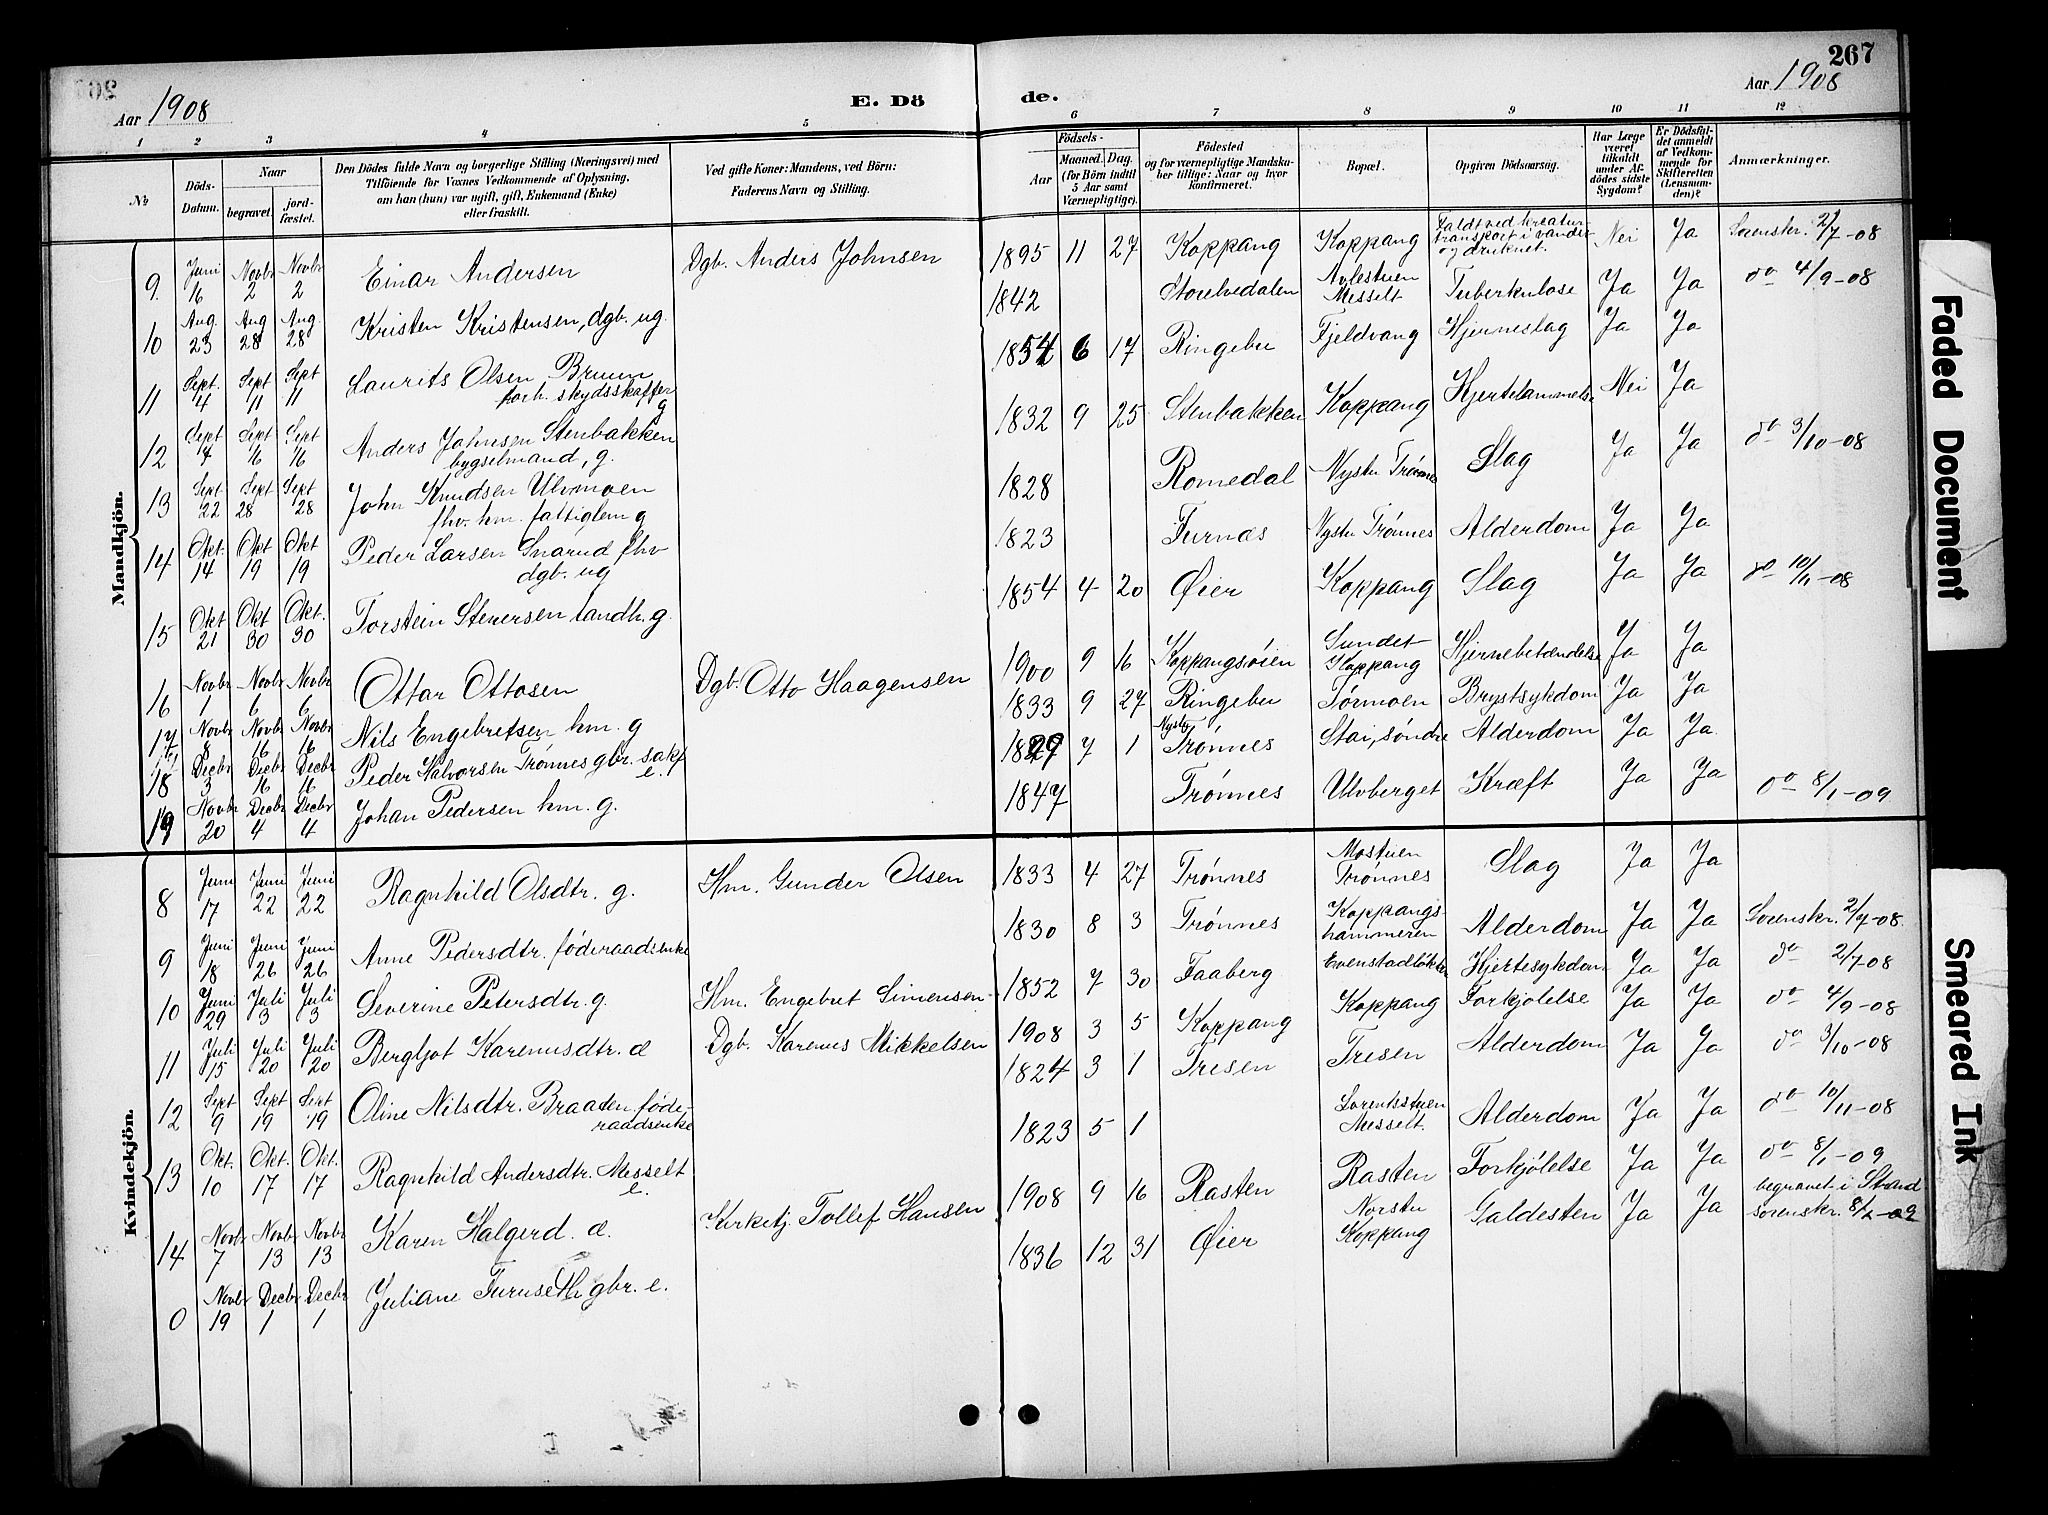 Aar 1908
E. Dö
de.
267
Aar 1908
1 2 3 4 5 6 7 8 9 10 11 12
No
Döds-Datum.
Naar
begravet.
jord-fæstet.
Den Dödes fulde Navn og borgerlige Stilling (Næringsvei) med
Tilföiende for Voxnes Vedkommende af Oplysning,
om han (hun) var ugift, gift, Enkemand (Enke)
eller fraskilt.
Ved gifte Koner: Mandens, ved Börn:
Faderens Navn og Stilling.
Födsels-
Aar
Maaned. Dag.
(for Börn indtil
5 Aar samt
Værnepligtige).
Födested
og for værnepligtige Mandska-
ber tillige: Naar og hvor
konfirmeret.
Bopæl.
Opgiven Dödsaarsag.
Har Læge
været
tilkaldt
under Af-
dödes sidste
Sygdom?
Er Dödsfal-
det anmeldt
af Vedkom-
mende for
Skifteretten
(Lensman-
den)?
Anmærkninger.
Mandkjön.
9. Juni 16 Novbr 2 Novbr 2 Einar Andersen Dgb. Anders Johnsen 1895 11 27 Koppang Koppang Faldt ved kreatur-transport i vandet og druknet. Nei Ja Sorenskr. 2/7-08
10 Aug. 23 Aug 28 Aug. 28 Kristen Kristensen, dgb. ug. 1842 Storelvedalen Avlestuen Messelt Tuberkulose Ja Ja do 4/9-08
11 Sept. 4 Sept 11 Sept 11 Laurits Olsen Bruun forh. skydsskaffer g 1854 6 17 Ringebu Fjeldvang Hjerneslag Ja Ja
12 Sept 4 Sept 16 Sept 16 Anders Johnsen Stenbakken bygselmand, g. 1832 9 25 Stenbakken Koppang Hjertelammels. Nei Ja
13 Sept 22 Sept 28 Sept 28 John Knudsen Ulvmoen fhv. hm. fattiglem g 1828 Romedal Nystu Trønnes Slag Ja Ja do 3/10-08
14 Okt. 14 Okt 19 Okt 19 Peder Larsen Snarud fhv dgb. ug 1823 Furnæs Nystu Trønnes Alderdom Ja Ja
15 Okt 21 Okt 30 Okt. 30 Torstein Stenersen landh. g. 1854 4 20 Øier Koppang Slag Ja Ja do 10/11-08
16 Novbr 1 Novbr 6 Novbr 6 Ottar Ottosen Dgb. Otto Haagensen 1900 9 16 Koppangsøien Sundet Koppang Hjernebetændelse Ja Ja
17 Novbr 8 Novbr 16 Novbr 16 Nils Engebretsen hm. g 1833 9 27 Ringebu Tørmoen Brystsykdom Ja Ja
18 Decbr 3 Decbr 16 Decbr 16 Peder Halvorsen Trønnes gbr. e. 1829 7 1 Nystu Trønnes Stai, søndre Alderdom Ja Ja
19 Novbr 20 Decbr 4 Decbr 4 Johan Pedersen hm. g. 1847 Trønnes Ulvberget Kræft Ja Ja do 8/1-09
Kvindekjön.
8 Juni 17 Juni 22 Juni 22 Ragnhild Olsdtr. g. Hm. Gunder Olsen 1833 4 27 Trønnes Mostuen Trønnes Slag Ja Ja
9 Juni 18 Juni 26 Juni 26 Anne Pedersdtr. føderaadsenke 1830 8 3 Trønnes Koppangs-hammeren Alderdom Ja Ja Sorenskr. 2/7-08.
10 Juni 29 Juli 3 Juli 3 Severine Petersdtr. g. Hm. Engebret Simensen 1852 7 30 Faaberg Hjertesykdom Ja Ja do 2/7-08
11 Juli 15 Juli 20 Juli 20 Bergljot Karenusdtr. d Dgb. Karenus Mikkelsen 1908 3 5 Koppang Koppang Forkjølelse Ja Ja do 4/9-08
12 Sept 9 Sept 19 Sept 19 Oline Nilsdtr. Braaten, føde-raadsenke 1824 3 1 Tresen Tresen Alderdom Ja Ja do 3/10-08
13 Okt. 10 Okt. 17 Okt. 17 Ragnhild Andersdtr. Messelt e. 1823 5 1 Lorentsstuen Messelt. Alderdom Ja Ja do 10/11-08
14 Novbr 7 Novbr 13 Novbr 13 Karen Halgerd. d. Kirketj. Tollef Hansen 1908 9 16 Rasten Rasten Forkjølelse Ja Ja do 8/1-09
0 Novbr 19 Decbr 1 Decbr 1 Juliane Furuseth gbr. e. 1836 12 31 Øier Norstu Koppang Galdesten Ja Ja begravet i Strand Sorenskr. 8/2-09
Faded Document
Smeared Ink